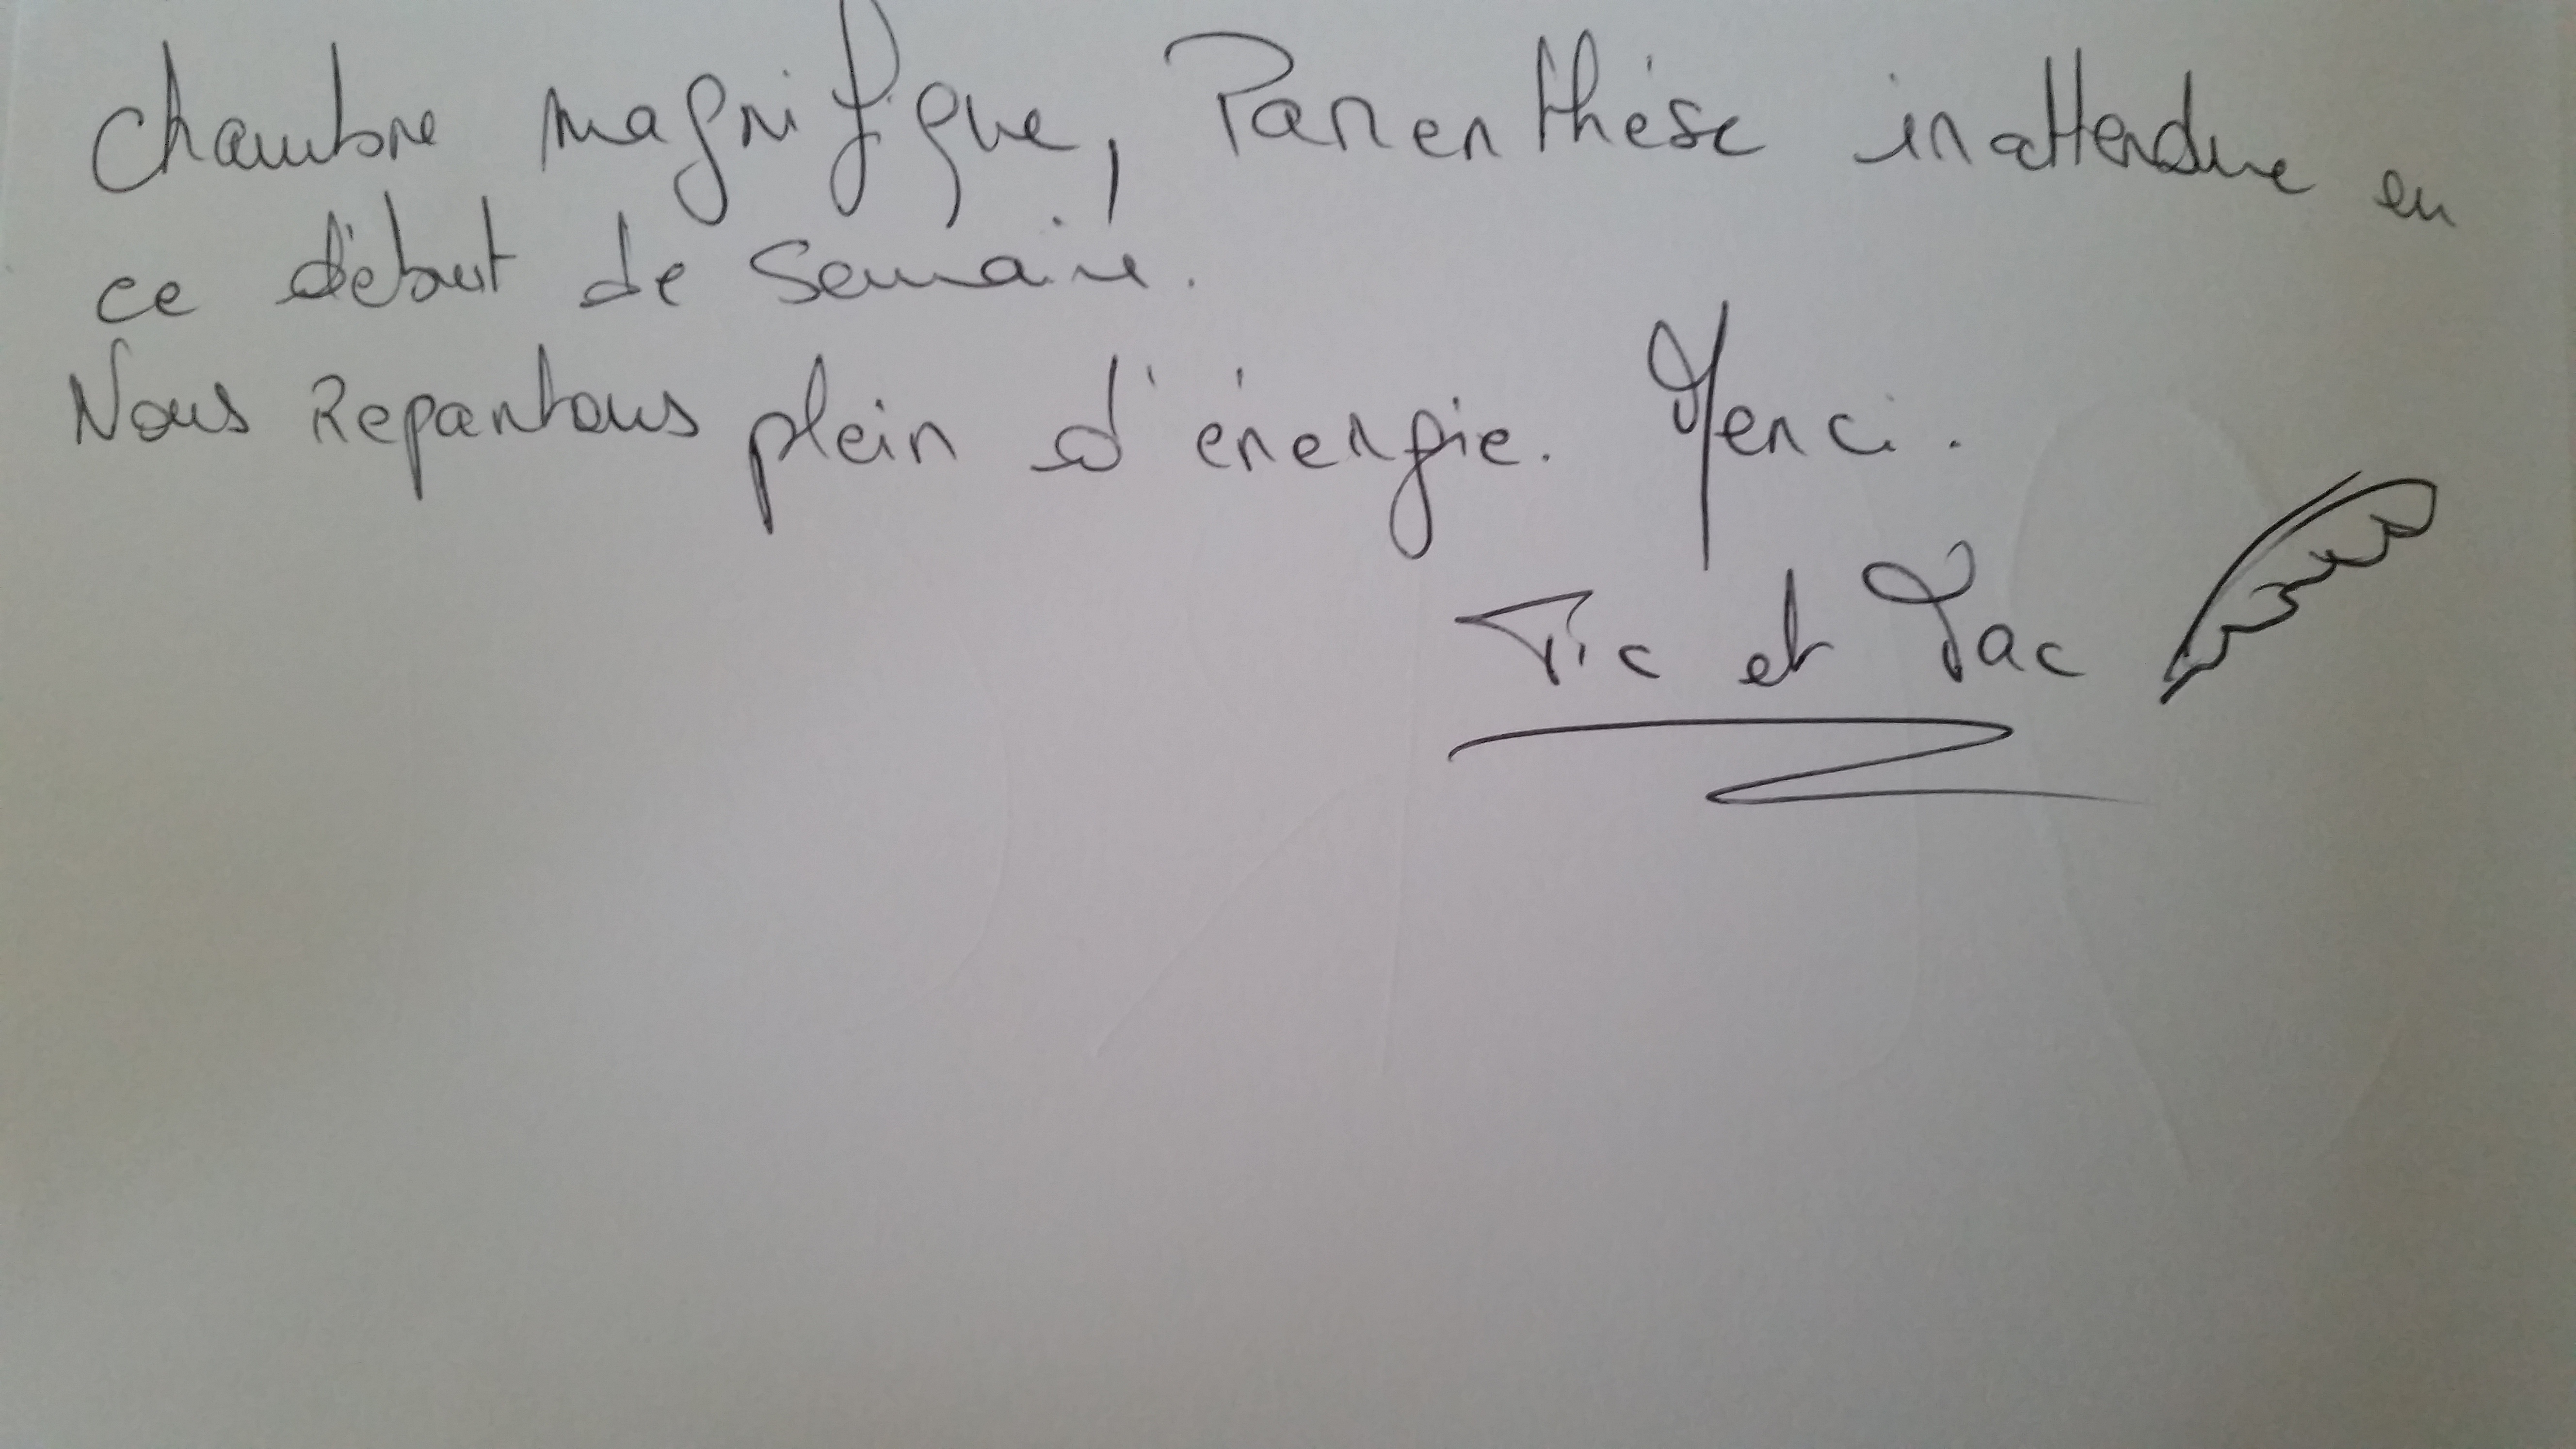 Chambre magnifique, Parenthèse inattendue en
ce début de semaine.
Nous Repartons plein d'énergie. Merci.
Tic et Tac